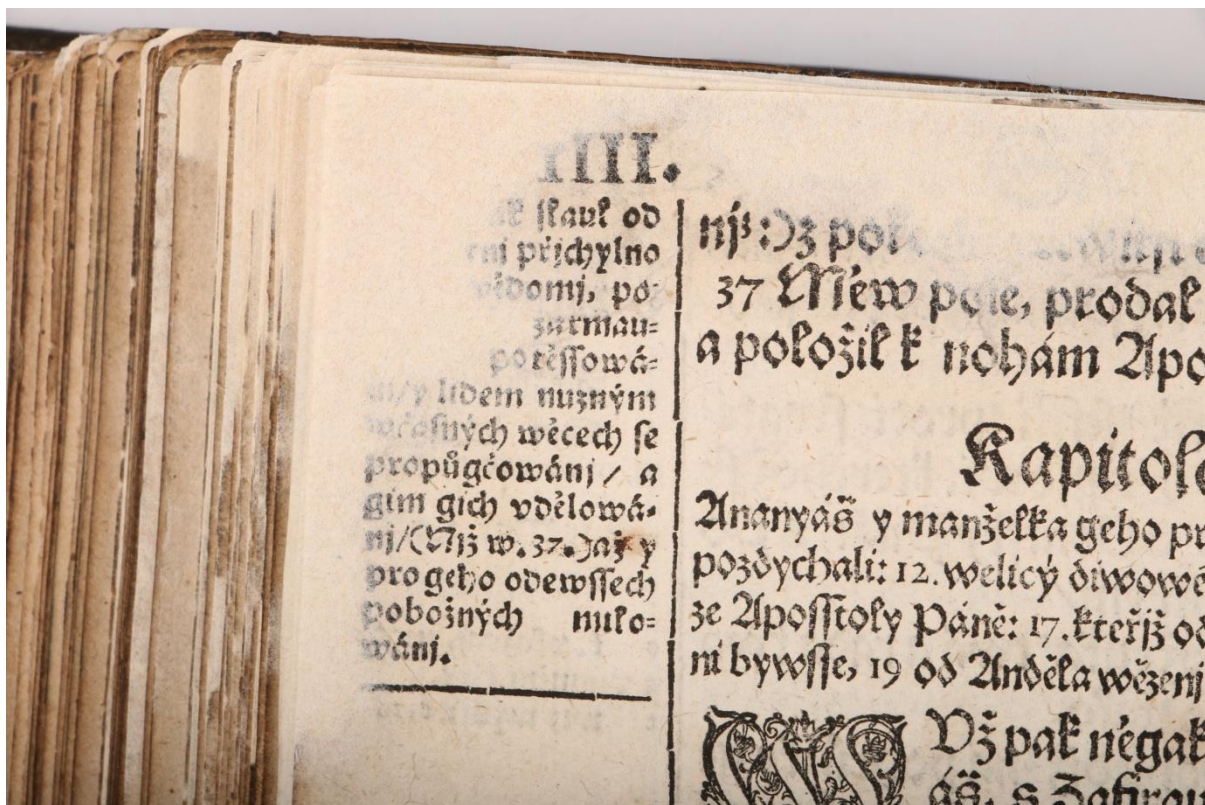 IIII.
skauk od
přjchylno
wědomj, po-
zarmau-
potěssowá-
nj/y lidem nuzným
wčasných wěcech se
propůgčowánj / a
gim gich vdělowá-
nj/(Njž w. 37.)až y
pro geho odewssech
pobožných milo-
wánj.
37 Měw pole, prodal
a položil k nohám Apo
Kapitol
Ananyáš y manželka geho pr
pozdychali: 12. welicý diwowé
ze Aposstoly Páně: 17. kteřjž od
ni bywsse, 19 od Anděla wězenj
Vž pak něgak
áš, s Zafirau